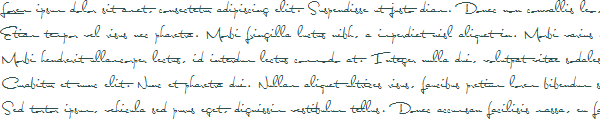 Lorem ipsum dolor sit amet, consectetur adipiscing elit. Suspendisse et justo diam. Donec non convallis leo.
Etiam tempor vel risus nec pharetra. Morbi fringilla luctus nibh, a imperdiet nisl aliquet in. Morbi varius
Morbi hendrerit ullamcorper lectus, id interdum lectus commodo at. Integer nulla dui, volutpat vitae sodales
Curabitur et nunc elit. Nunc et pharetra dui. Nullam aliquet ultrices risus, faucibus pretium lorem bibendum s
Sed tortor ipsum, vehicula sed purus eget, dignissim vestibulum tellus. Donec accumsan facilisis massa, eu fa